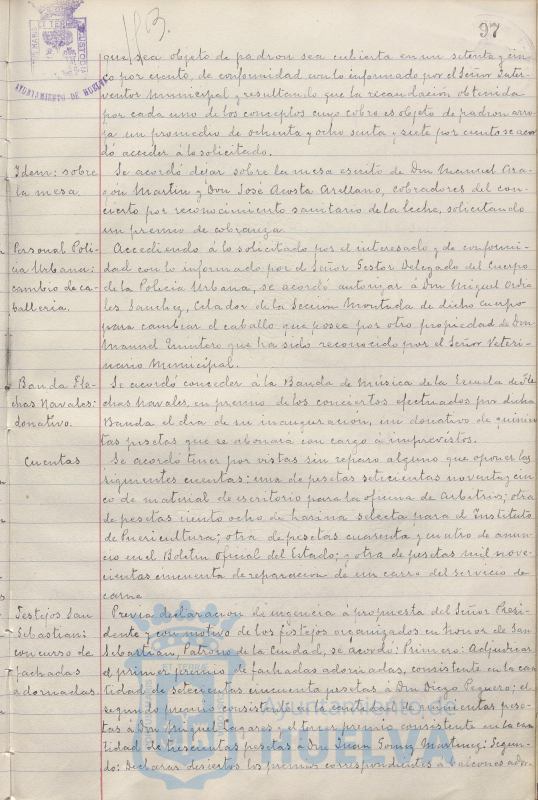 113.
97
AYUNTAMIENTO DE HUELVA
que sea objeto de padron sea cubierta en un setenta y cin-
co por ciento, de conformidad con lo informado por el Señor Inter-
ventor Municipal y resultando que la recaudación obtenida
por cada uno de los conceptos cuyo cobro es objeto de padron arro-
ja un promedio de ochenta y ocho senta y siete por ciento se acor-
dó acceder á lo solicitado.
Idem: sobre
la mesa
Se acordó dejar sobre la mesa escrito de Don Manuel Ara-
gón Martin y Don José Acosta Arellano, cobradores del con-
cierto por reconocimiento sanitario de la leche, solicitando
un premio de cobranza
Personal Poli-
cia Urbana:
cambio de ca-
balleria.
Accediendo á lo solicitado por el interesado y de conformi-
dad con lo informado por el Señor Gestor Delegado del Cuerpo
de la Policia Urbana, se acordó autorizar á Don Miguel
Sanchez, Celador de la Seccion Montada de dicho Cuerpo
para cambiar el caballo que posee por otro propiedad de Don
Manuel Quintero que ha sido reconocido por el Señor Veteri-
nario Municipal.
Banda Fle-
chas Navales:
donativo.
Se acordó conceder á la Banda de Música de la Escuela de Fle-
chas Navales, en premio de los conciertos efectuados por dicha
Banda el dia de su inauguracion, un donativo de quinien-
tas pesetas que se abonará con cargo á imprevistos.
Cuentas
Se acordó tener por vistas sin reparo alguno que oponer las
siguientes cuentas: una de pesetas setecientas noventa y cin-
co de material de escritorio para la oficina de Arbitrios; otra
de pesetas ciento ocho de harina selecta para el Instituto
de Puericultura; otra de pesetas cuarenta y cuatro de anun-
cio en el Boletin Oficial del Estado; y otra de pesetas mil nove-
cientas cincuenta de reparacion de un carro del servicio de
carne
Festejos San
Sebastian:
concurso de
fachadas
adornadas.
Previa declaracion de urgencia á propuesta del Señor Presi-
dente y con motivo de los festejos organizados en honor de San
Sebastian, Patrono de la Ciudad, se acordó: Primero: Adjudicar
el primer premio de fachadas adornadas, consistente en la can-
tidad de setecientas cincuenta pesetas á Don Diego Peguero; el
segundo premio consistente en la cantidad de quinientas pese-
tas á Don Miguel Cazares y el tercer premio consistente en la can-
tidad de trescientas pesetas á Don Juan Gomez Martinez: Segun-
do: Declarar desiertos los premios correspondientes á balcones ador-